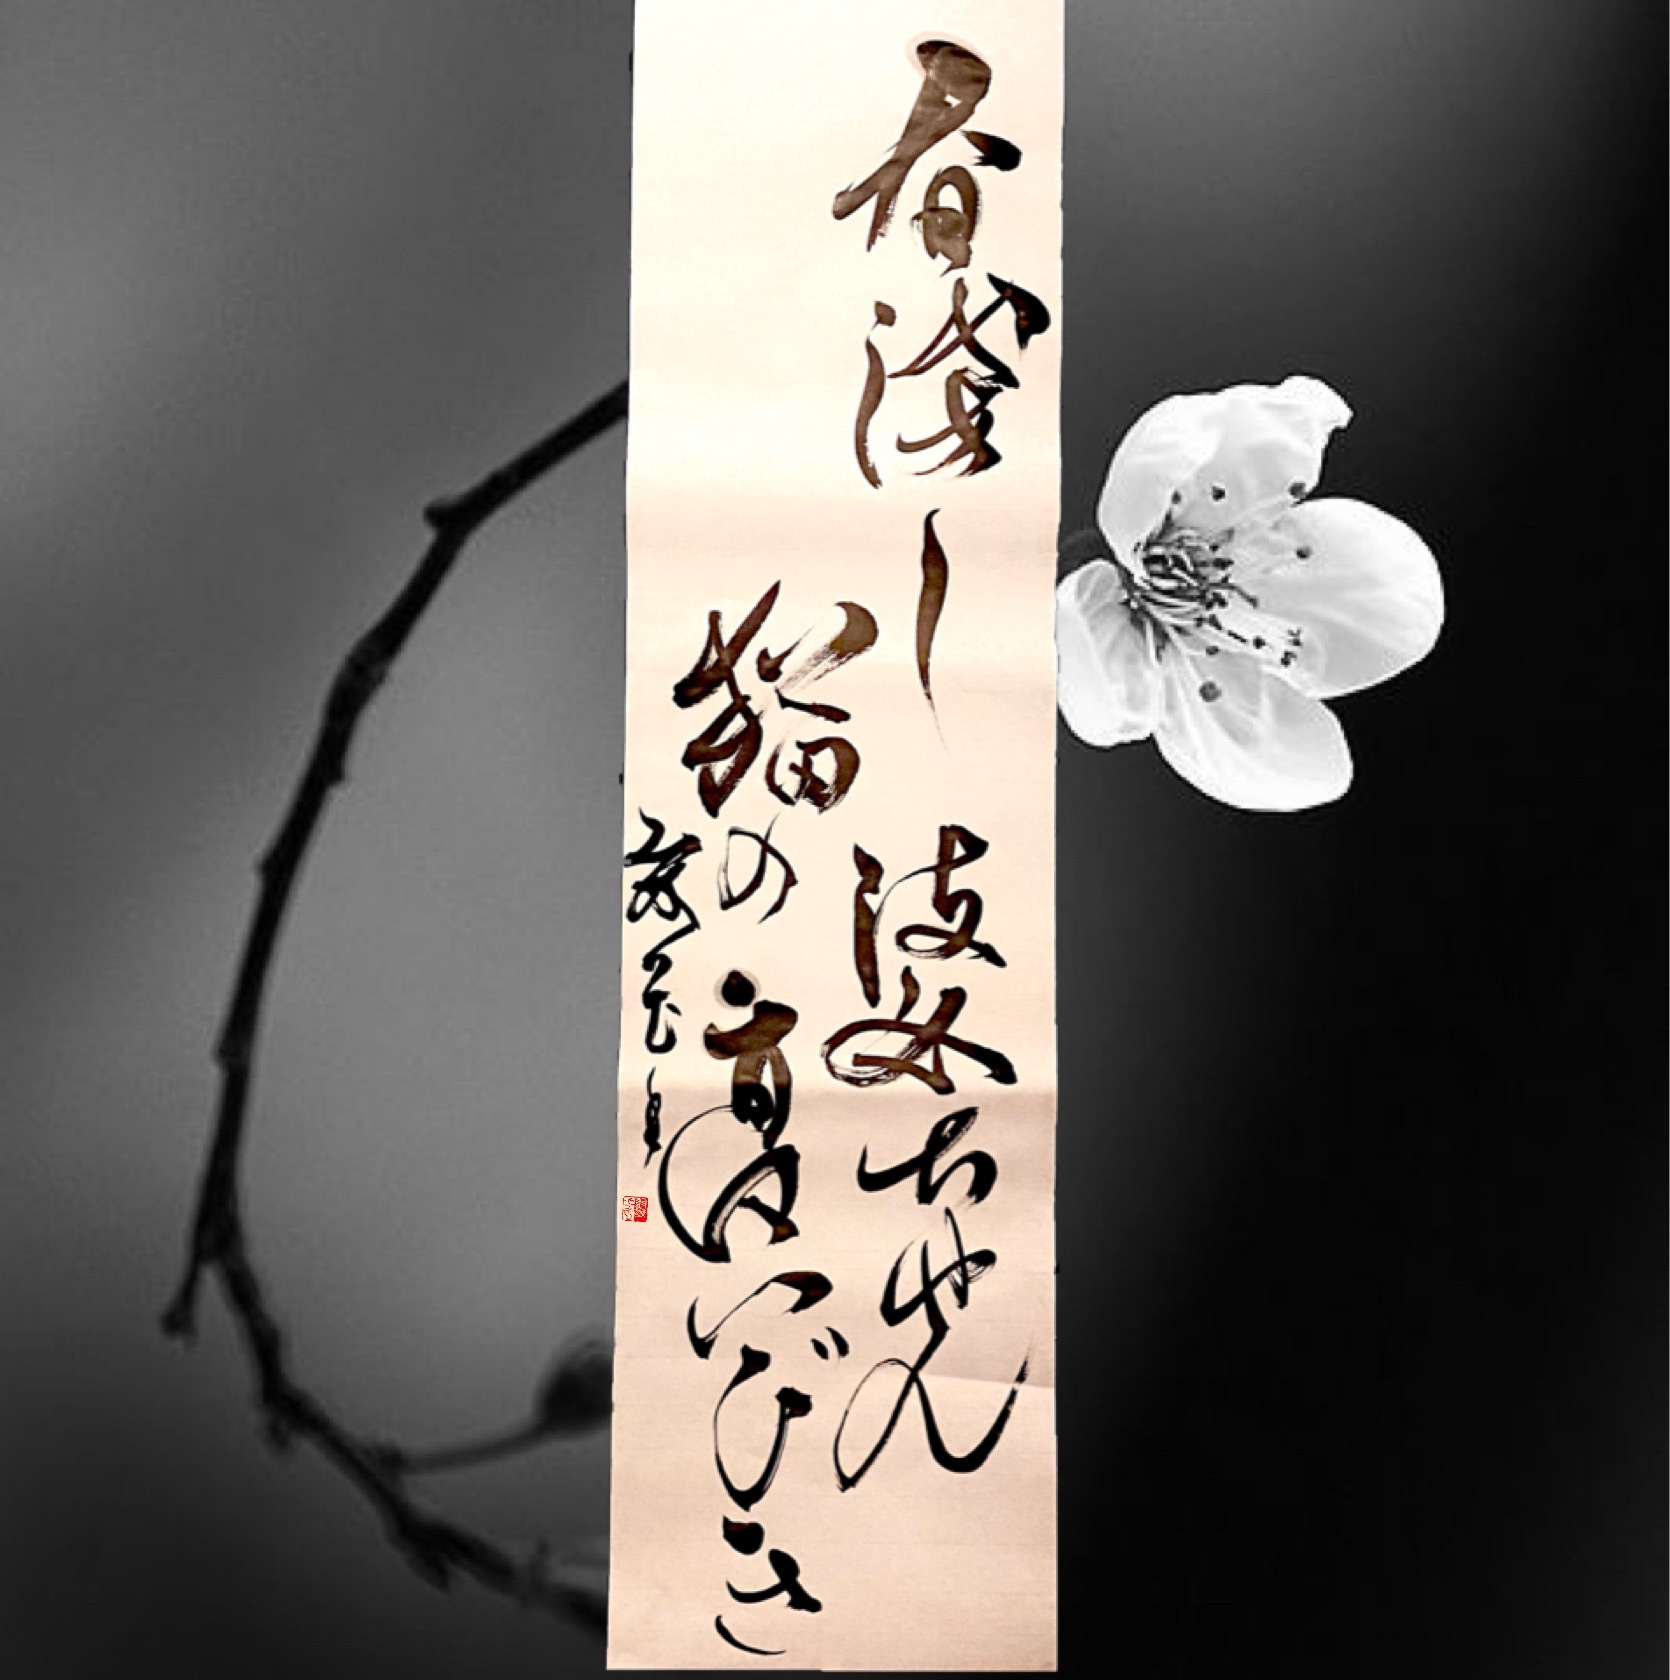 春浅し波女ちやん
猫の高いびき